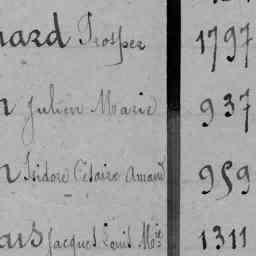 nard Prosper 1797
n Julien Marie 937
n Isidore Césaire Amand 959
ars Jacques Louis Mie 1311